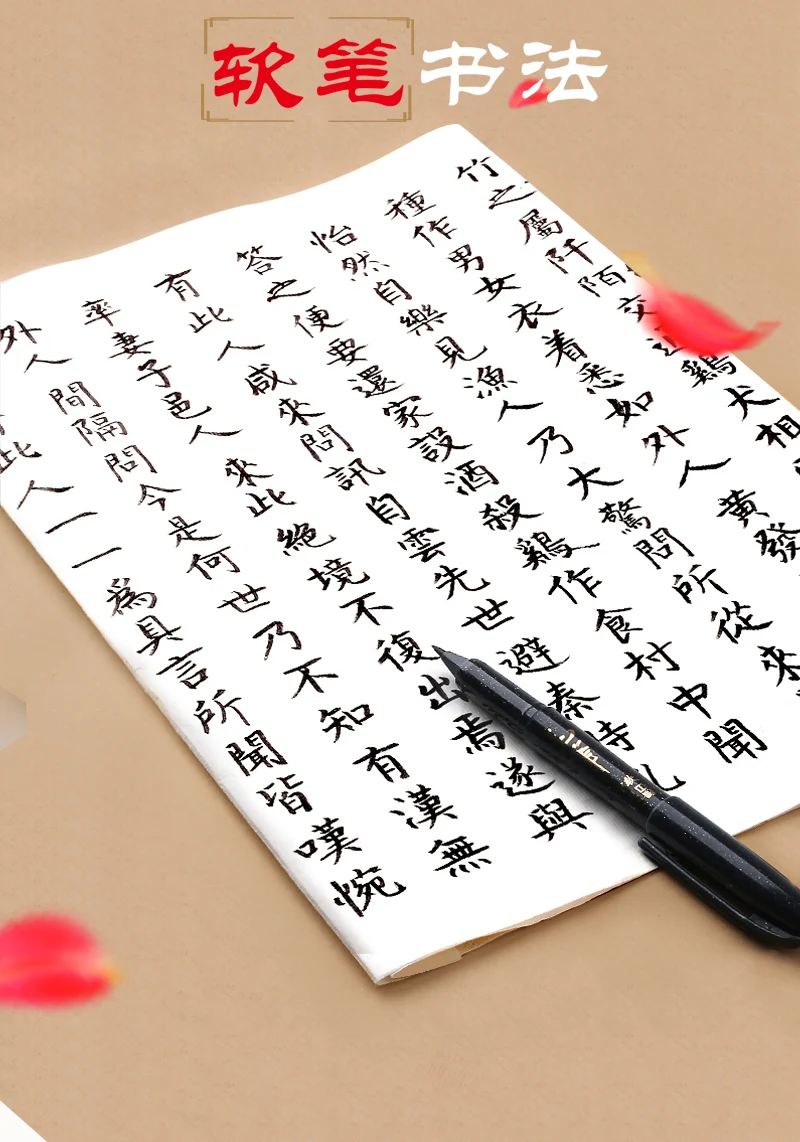 软笔书法
竹之屬阡陌交鷄犬相
種作男女衣着悉如外人黃發
怡然自樂見漁人乃大驚問所從來
答之便要還家設酒殺鷄作食村中聞
有此人咸來問訊自雲先世避秦時
率妻子邑人來此絕境不復出焉遂與
外人間隔問今是何世乃不知有漢無
此人一一為具言所聞皆嘆惋